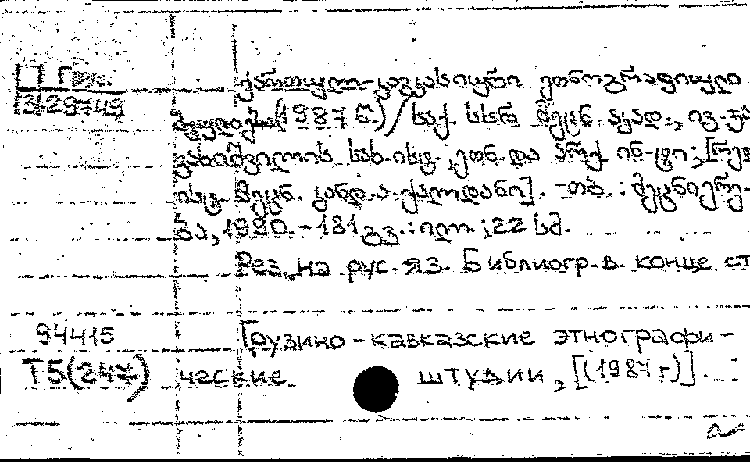 1 Груз.
3-29749
ქართულ-კავკასიური ეთნოგრაფიული
(1987 წ.) / საქ. სსრ მეცნ. აკად., ივ. ჯა
ვახიშვილის სახ. ისტ., ეთნ. და არქ. ინ-ტი; [რედ
ისტ. მეცნ. კანდ. ა. ქალდანი]. - თბ. : მეცნიერე-
ბა, 1990. - 181 გვ. : ილ. ; 22 სმ.
Рез. на рус. яз. Библиогр. в конце ст
94415
Грузино-кавказские этнографи-
Т5(247)
ческие штудии, [(1987 г)].